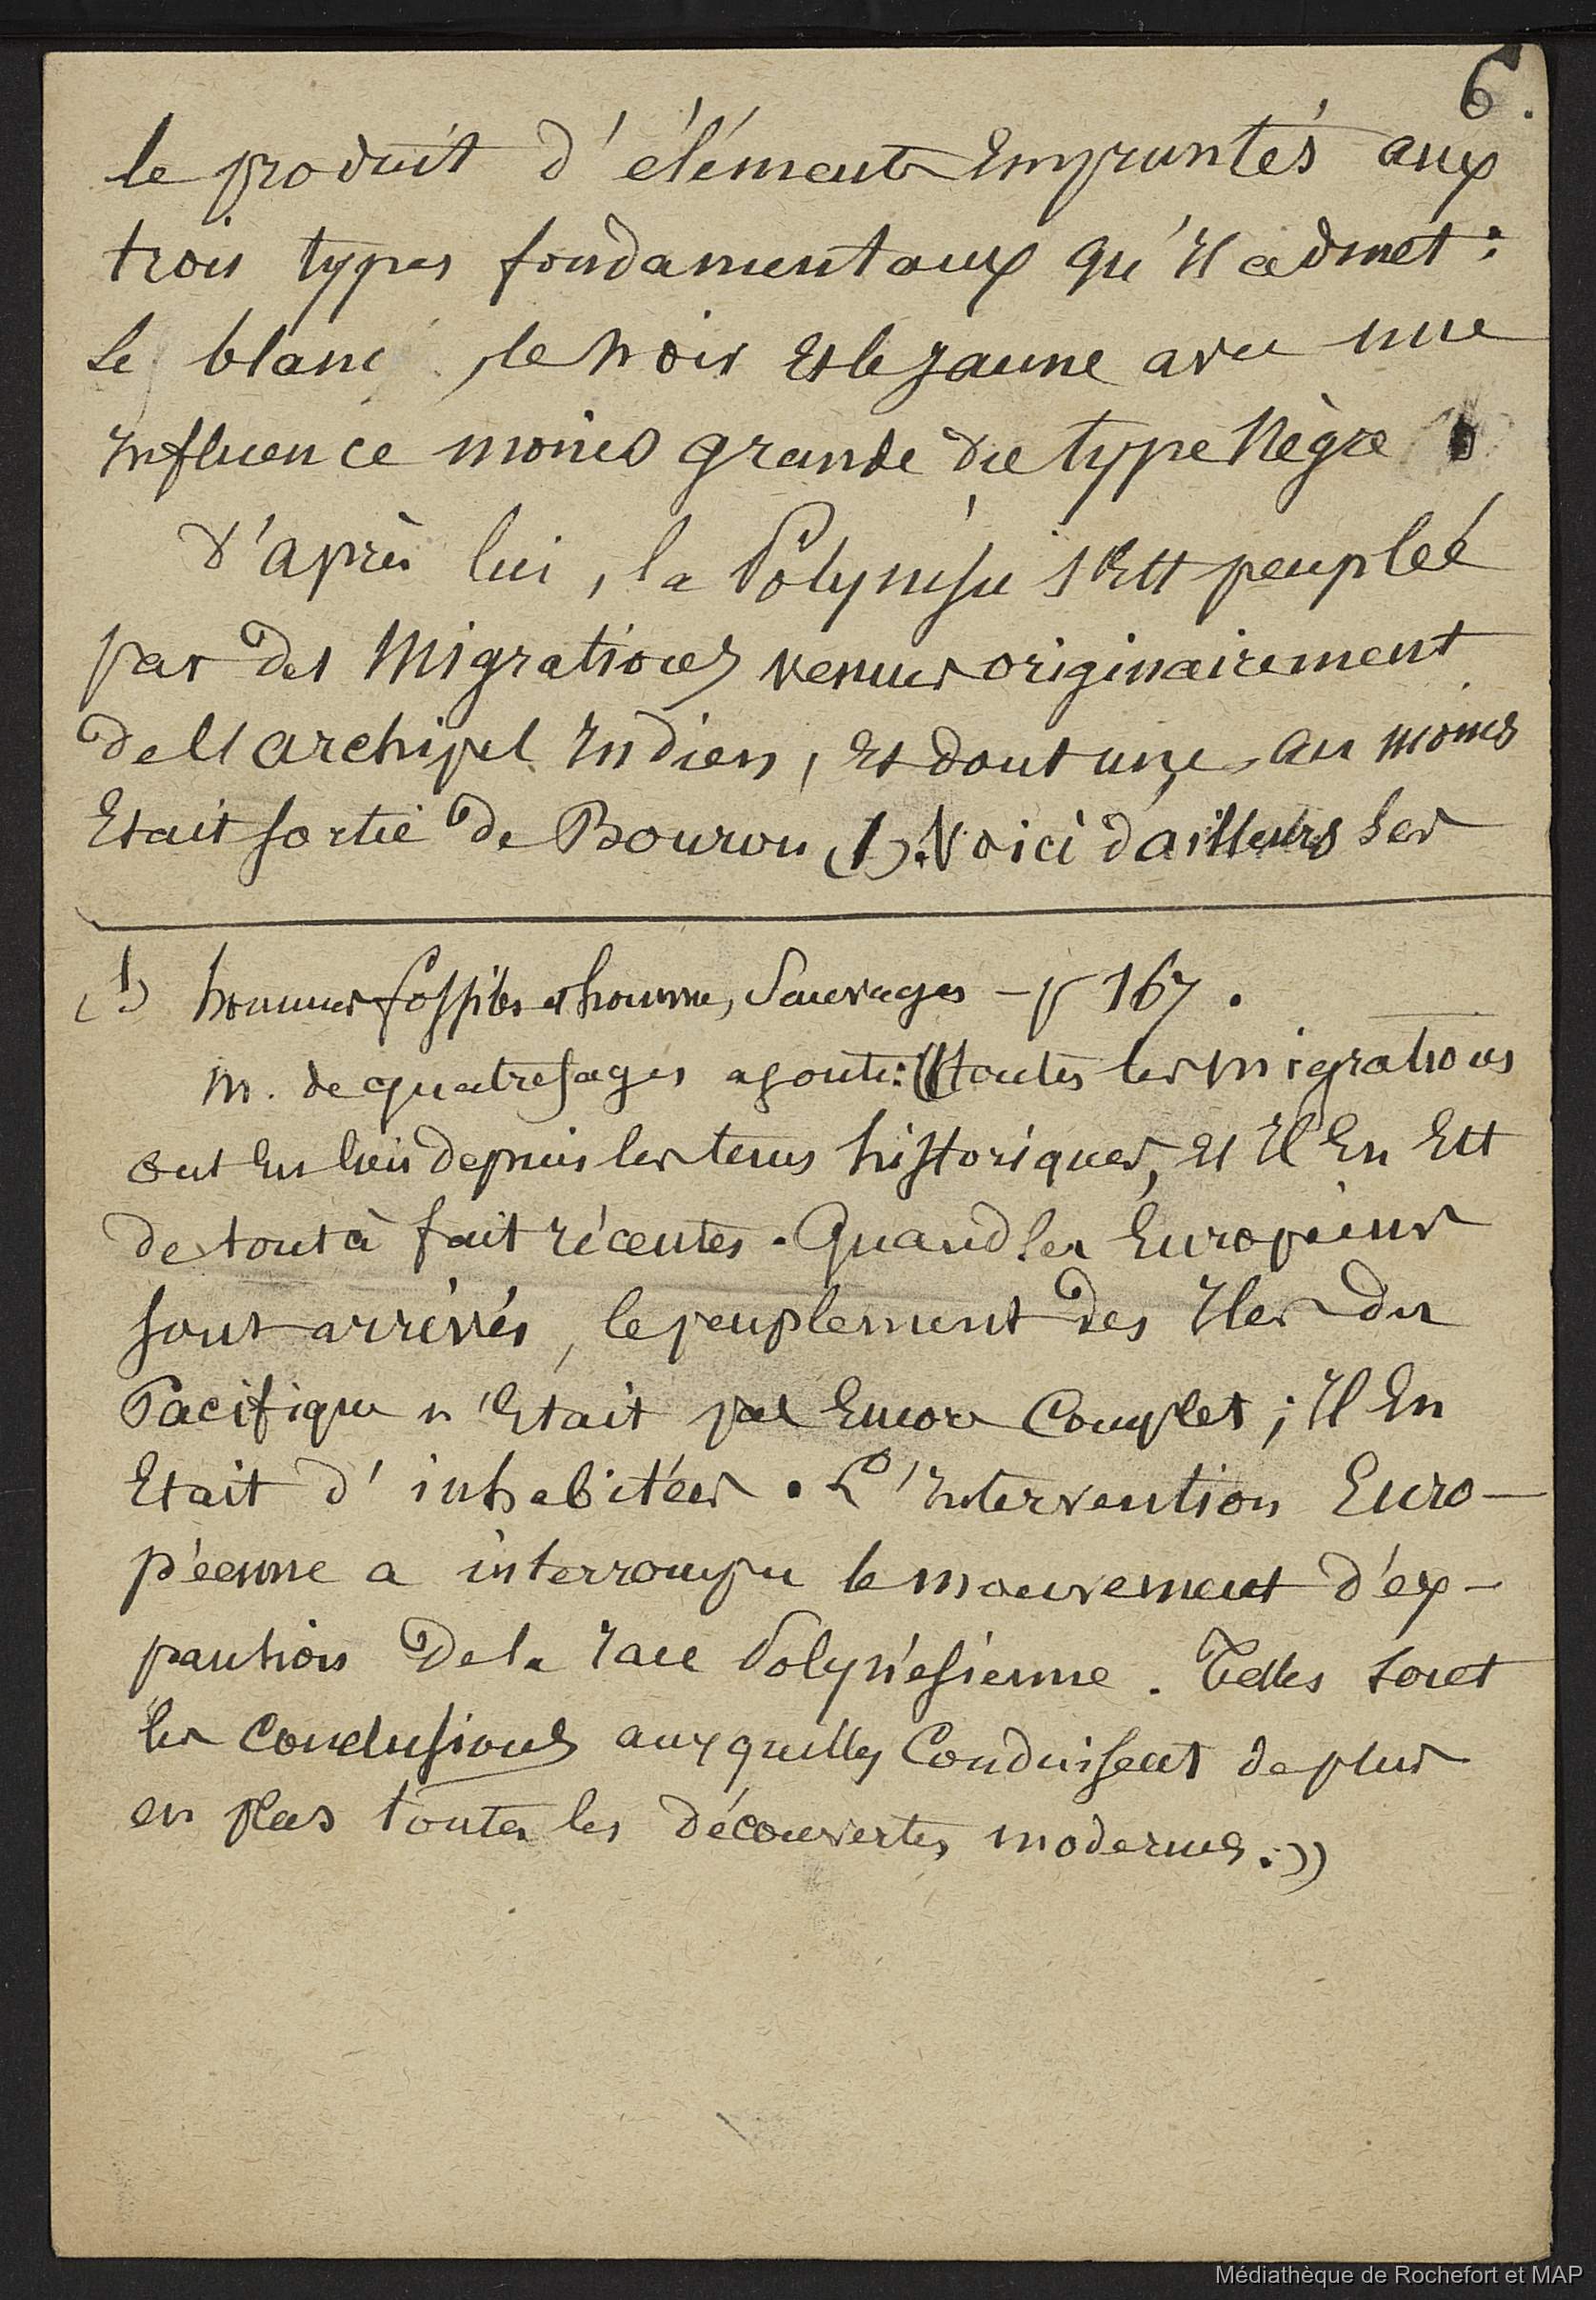 6.
le produit d'éléments Empruntés aux
trois types fondamentaux qu'Il admet :
Le blanc, le noir Et le Jaune avec une
Influence moins grande du type Nègre
D'après lui, la Polynésie s'Est peuplée
par des Migrations venues originairement
de l'archipel Indien, Et dont une, au moins
Etait sortie de Bourou (1). Voici d'ailleurs Ses
(1) hommes fossiles et hommes Sauvages – p 167.
M. de quatrefages ajoute : «toutes les migrations
ont Eu lieu depuis les tems historiques, Et Il En Est
de tout à fait récentes. Quand les Européens
sont arrivés, le peuplement des Iles du
Pacifique n'Etait pas Encore Complet ; Il En
Etait d'inhabitées. L'Intervention Euro-
péenne a interrompu le mouvement d'ex-
pansion De la race Polynésienne. Telles sont
les Conclusions auxquelles Conduisent de plus
en plus toutes les découvertes modernes.»
Médiathèque de Rochefort et MAP